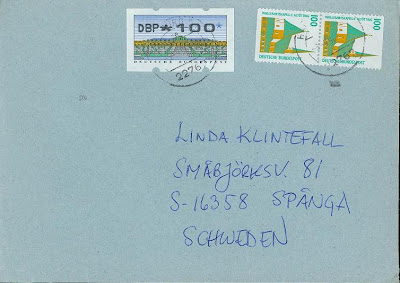 DBP * 100
DEUTSCHE BUNDESPOST
100 100
DEUTSCHE BUNDESPOST DEUTSCHE BUNDESPOST
2276
LINDA KLINTEFALL
SMÅBJÖRKSV. 81
S-16358 SPÅNGA
SCHWEDEN